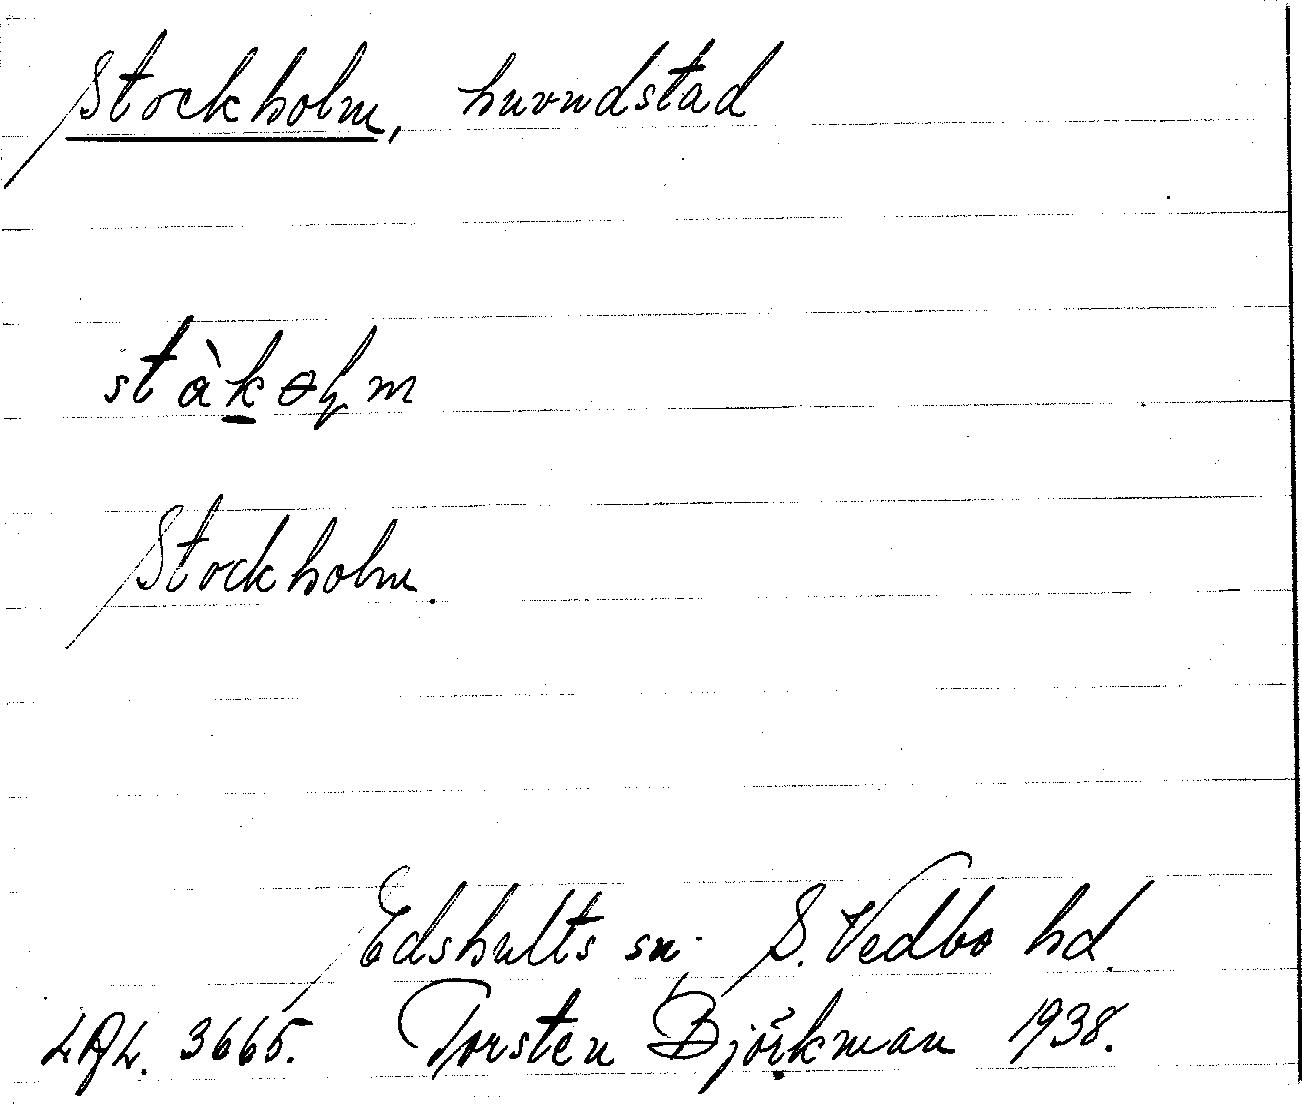 Stockholm, huvudstad
stàkɵꞎm
Stockholm.
Edshults sn; S. Vedbo hd.
3665. Torsten Björkman 1938.